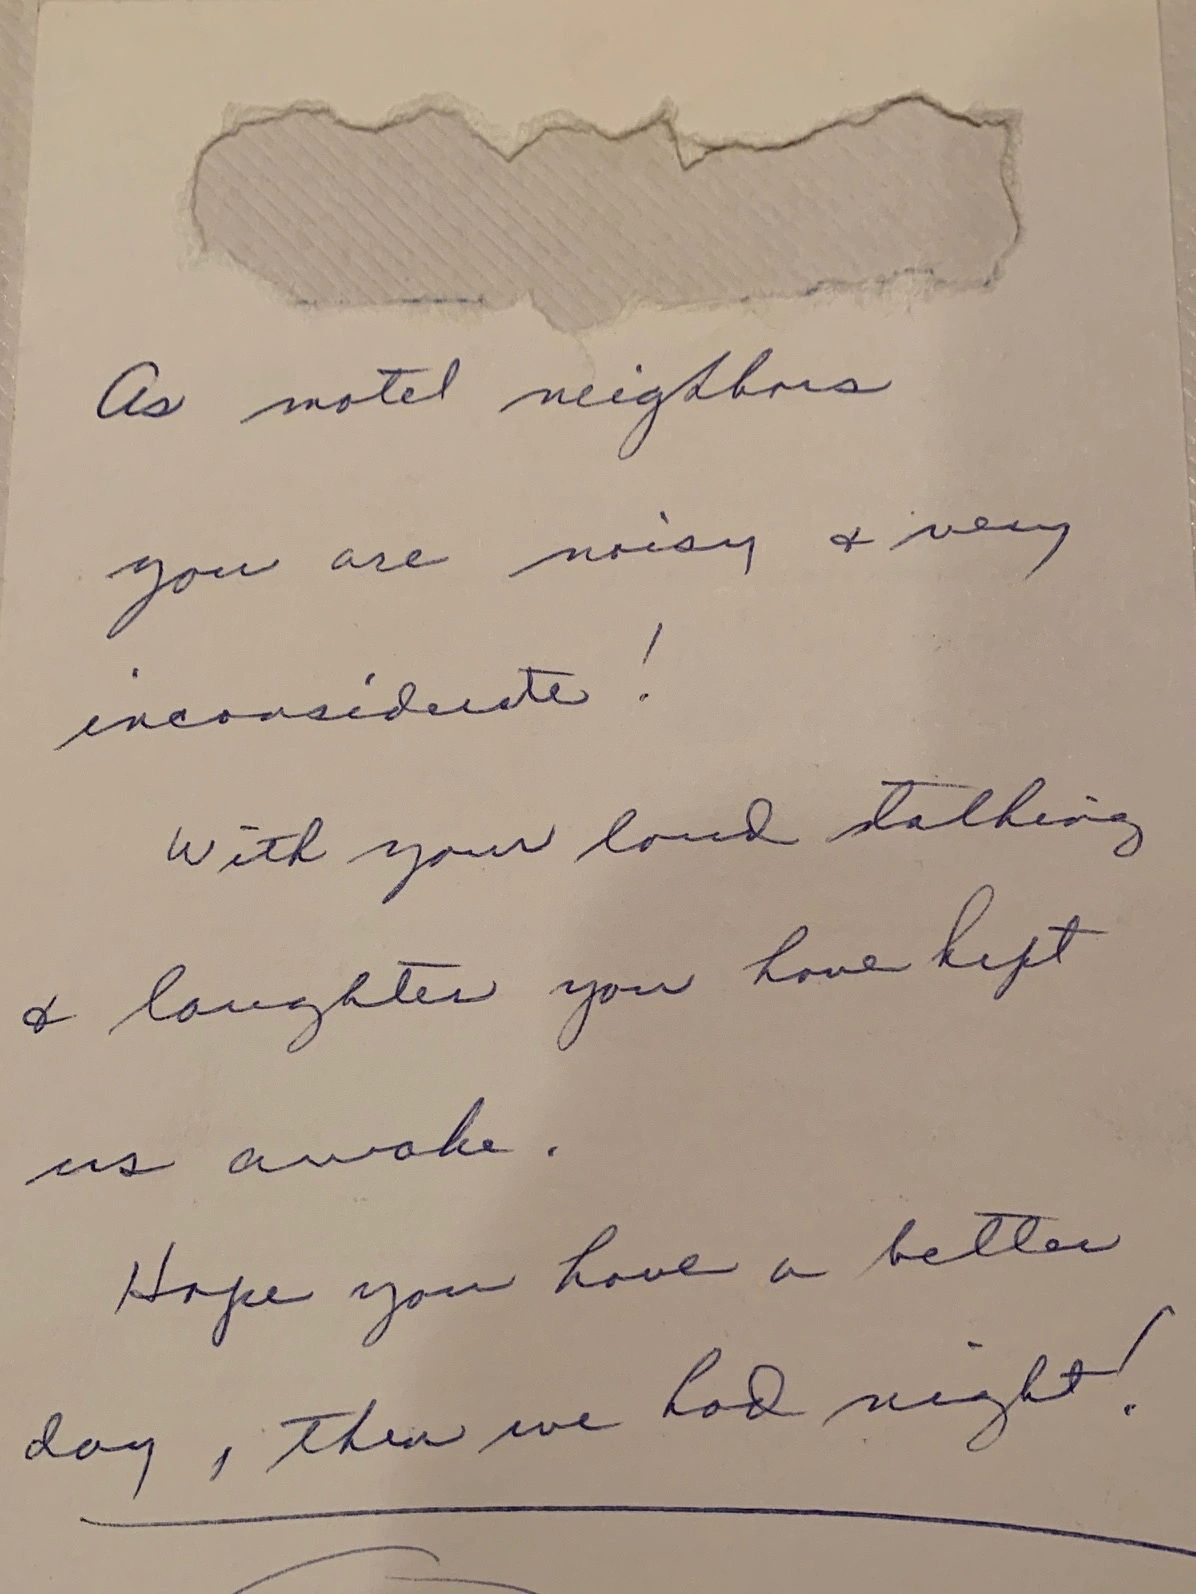 As motel neighbors
you are noisy & very
inconsiderate!
With your loud talking
& laughter you have kept
us awake.
Hope you have a better
day, then we had night!